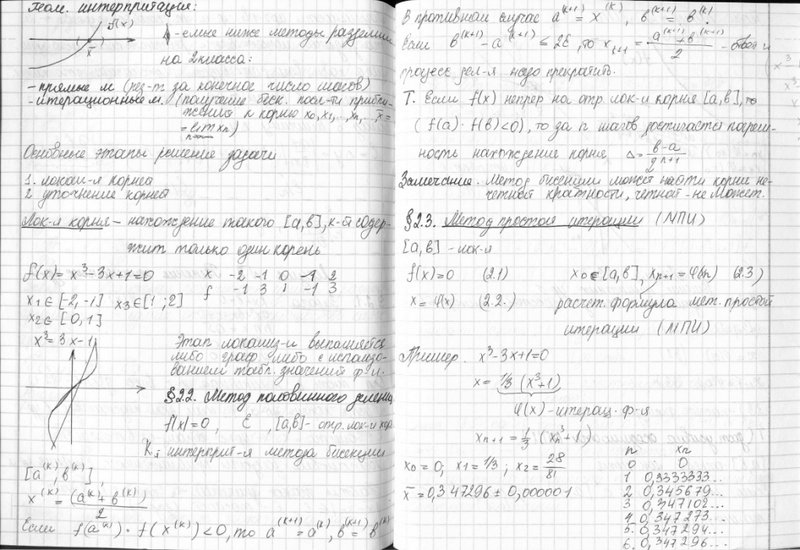 Геом. интерпритация:
f(x)
x̄
φ-емые ниже методы разделим
на 2 класса:
- прямые м. (рез-т за конечное число шагов)
- итерационные м. (получение беск. посл-ти прибли-
жения к корню x₀, x₁, ..., xₙ, ..., x̄ =
= lim xₙ)
n→∞
Основные этапы решение задачи
1. локали-я корнея
2. уточнение корнея
Лок-я корня – нахождение такого [a,b], к-й содер-
жит только один корень
f(x) = x³-3x+1=0 x -2 -1 0 1 2
f -1 3 1 -1 3
x₁∈[-2,-1] x₃∈[1;2]
x₂∈[0,1]
x³=3x-1
Этап локализ-и выполняется
либо граф. либо с использо-
ванием табл. значений ф-и.
§2.2. Метод половинного деления
f(x)=0, ε, [a,b]- отр. лок-и кор.
K, интерприт-я метода бисекции
[a⁽ᵏ⁾, b⁽ᵏ⁾],
x⁽ᵏ⁾ = (a⁽ᵏ⁾+b⁽ᵏ⁾)/2
Если f(a⁽ᵏ⁾)·f(x⁽ᵏ⁾)<0, то a⁽ᵏ⁺¹⁾=a⁽ᵏ⁾, b⁽ᵏ⁺¹⁾=b⁽ᵏ⁾
В противном случае a⁽ᵏ⁺¹⁾=x⁽ᵏ⁾, b⁽ᵏ⁺¹⁾=b⁽ᵏ⁾.
Если b⁽ᵏ⁺¹⁾-a⁽ᵏ⁺¹⁾≤2ε, то xₖ₊₁=(a⁽ᵏ⁺¹⁾+b⁽ᵏ⁺¹⁾)/2 - ответ и
процесс дел-я надо прекратить.
Т. Если f(x) непрер на отр. лок-и корня [a,b], то
(f(a)·f(b)<0), то за n шагов достигается погреш-
ность нахождение корня Δ=(b-a)/2ⁿ⁺¹
Замечание. Метод бисекции может найти корни не-
четной кратности, четной - не может.
§2.3. Метод простой итерации (МПИ)
[a,b] - лок-я
f(x)=0 (2.1) x₀∈[a,b], xₙ₊₁=φ(xₙ) (2.3)
x=φ(x) (2.2.) расчет. формула мет. простой
итерации (МПИ)
Пример. x³-3x+1=0
x = 1/3 (x³+1)
φ(x)-итерац. ф-я
xₙ₊₁=1/3 (xₙ³+1)
x₀=0; x₁=1/3; x₂=28/81
x̄=0,347296±0,000001
n xₙ
0 0
1 0,3333333...
2 0,345679...
3 0,347102...
4. 0,347273...
5. 0,347294...
6. 0,347296...